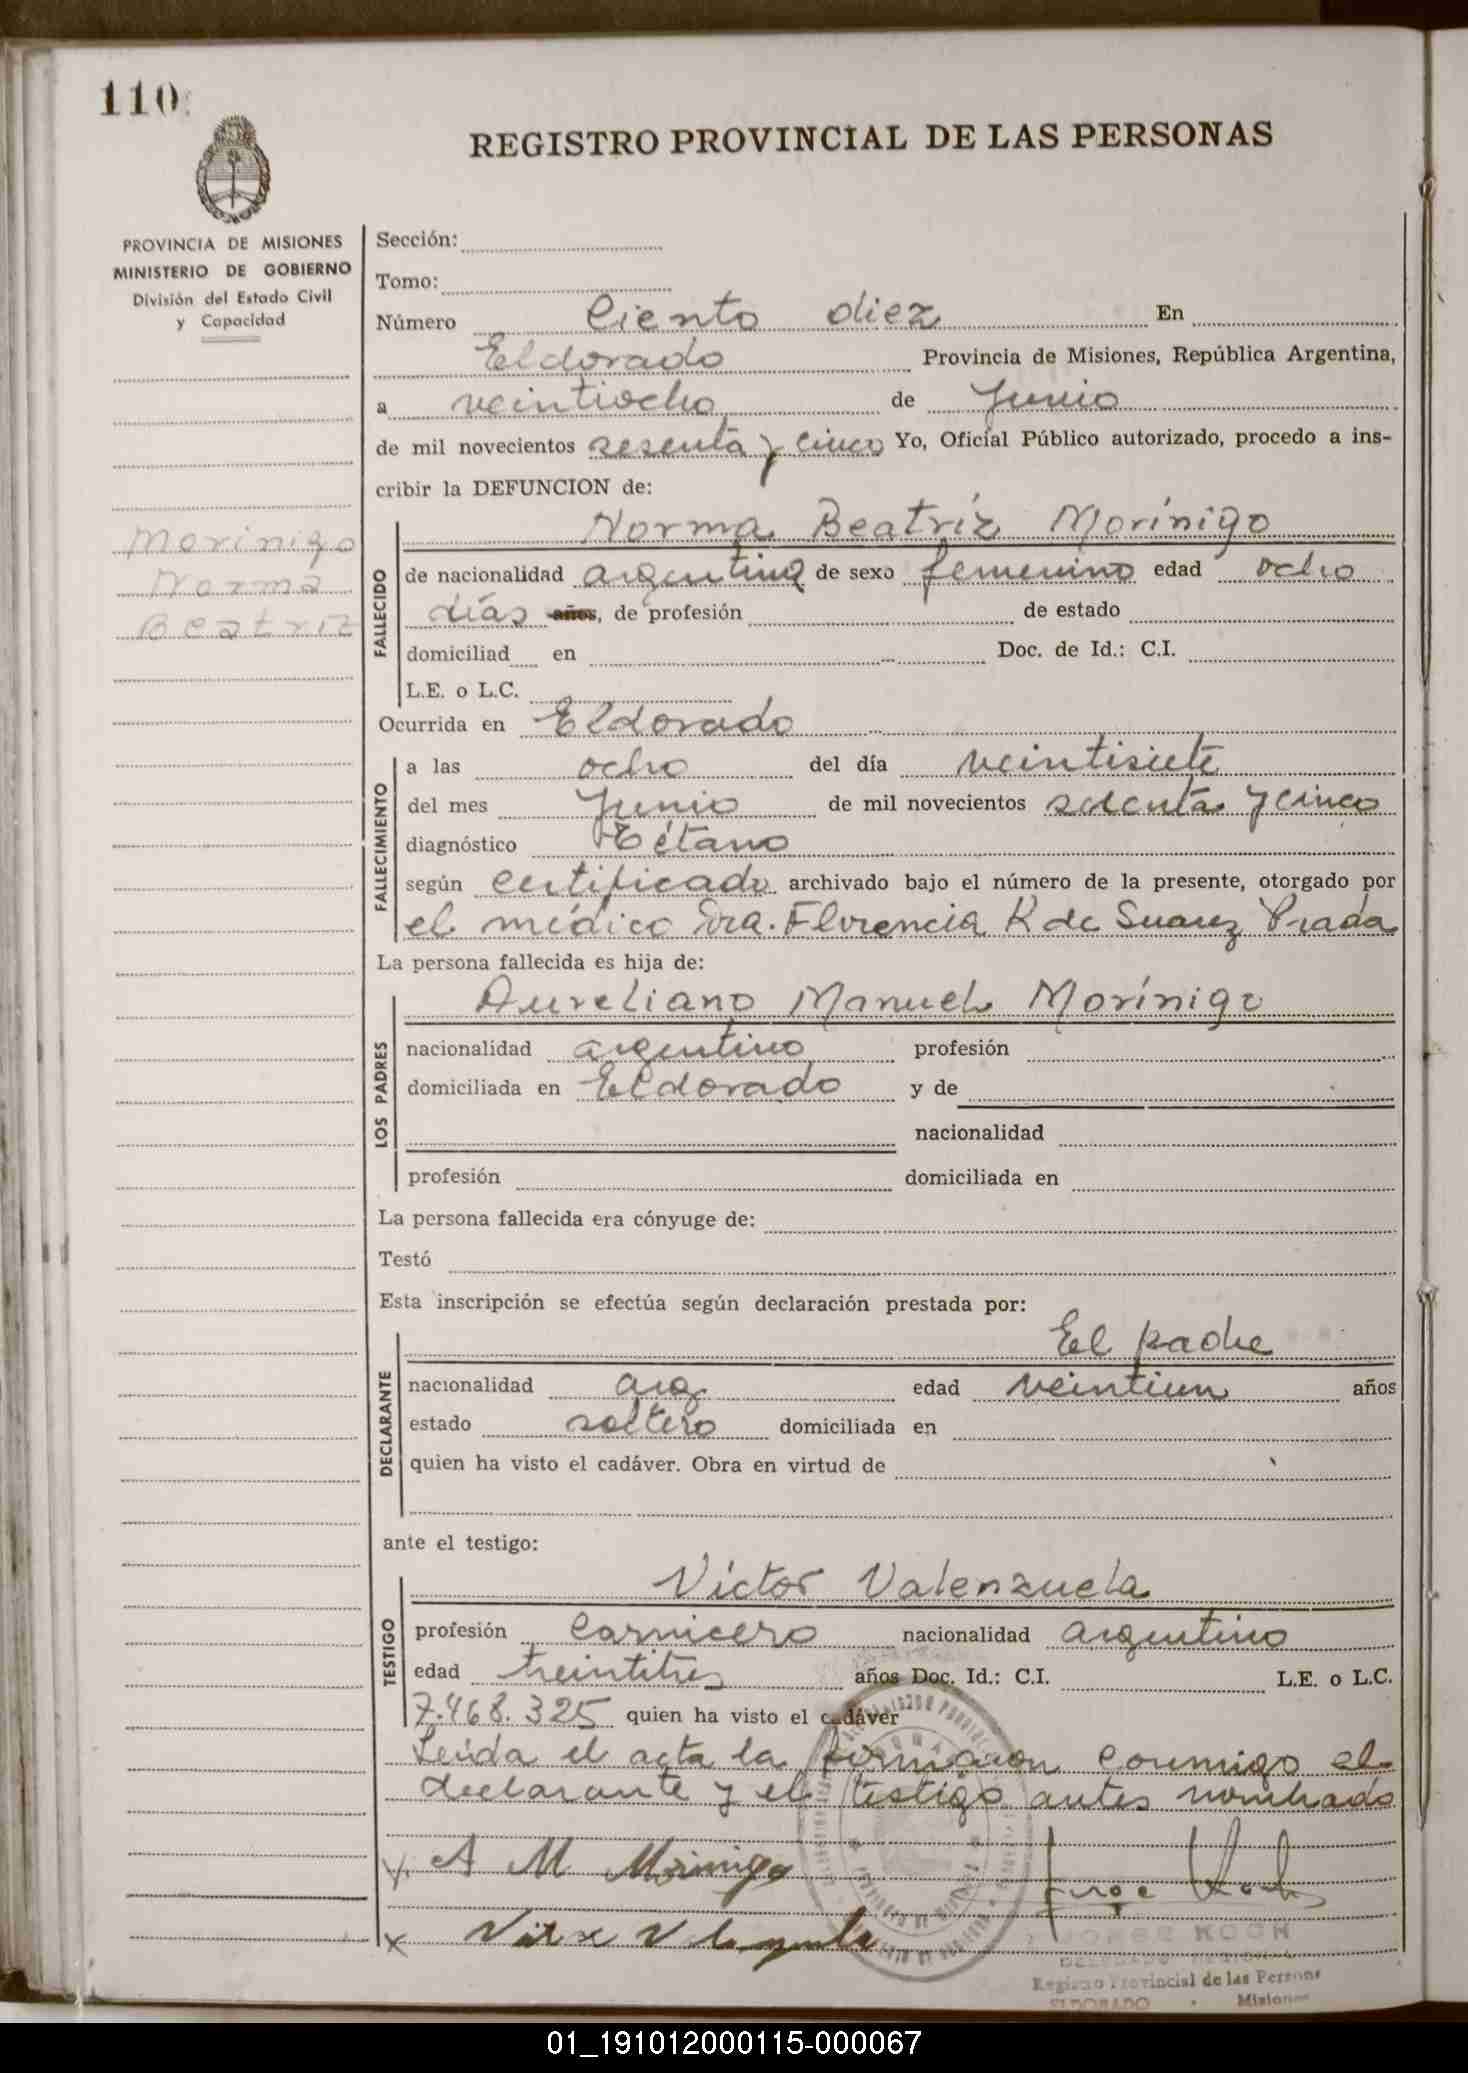 110
REGISTRO PROVINCIAL DE LAS PERSONAS
PROVINCIA DE MISIONES
MINISTERIO DE GOBIERNO
División del Estado Civil
y Capacidad
Morinigo
Norma
Beatriz
Sección:
Tomo:
Número Ciento diez En
Eldorado Provincia de Misiones, República Argentina,
a veintiocho de Junio
de mil novecientos sesenta y cinco Yo, Oficial Público autorizado, procedo a ins-
cribir la DEFUNCION de:
FALLECIDO
Norma Beatríz Morínigo
de nacionalidad argentina de sexo femenino edad ocho
días años, de profesión de estado
domiciliad en Doc. de Id.: C.I.
L.E. o L.C.
Ocurrida en Eldorado
FALLECIMIENTO
a las ocho del día veintisiete
del mes Junio de mil novecientos sesenta y cinco
diagnóstico Tétano
según certificado archivado bajo el número de la presente, otorgado por
el médico Dra. Florencia K de Suarez Prada
La persona fallecida es hija de:
LOS PADRES
Aureliano Manuel Morínigo
nacionalidad argentino profesión
domiciliada en Eldorado y de
nacionalidad
profesión domiciliada en
La persona fallecida era cónyuge de:
Testó
Esta inscripción se efectúa según declaración prestada por:
DECLARANTE
El padre
nacionalidad arg. edad veintiun años
estado soltero domiciliada en
quien ha visto el cadáver. Obra en virtud de
ante el testigo:
TESTIGO
Víctor Valenzuela
profesión Carnicero nacionalidad argentino
edad treintitres años Doc. Id.: C.I. L.E. o L.C.
7.468.325 quien ha visto el cadáver
Leida el acta la firmaron conmigo el
declarante y el testigo antes nombrado
A M Morinigo
Jorge Koch
x
JORGE KOCH
DELEGADO REGIONAL
Registro Provincial de las Personas
ELDORADO - Misiones
01_191012000115-000067